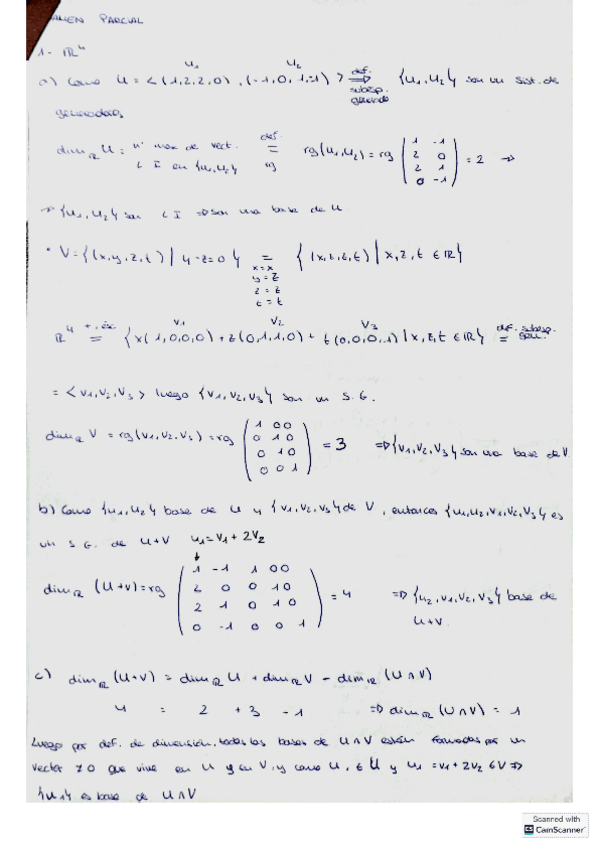 EXAMEN PARCIAL
1- ℝ⁴
u₁ u₂
a) Como U = < (1,2,2,0), (-1,0,1,-1) > ⇒ def. subesp. generado {u₁,u₂} son un sist. de
generadores
dim_ℝ U = nº max de vect. L I en {u₁,u₂} = def. rg rg(u₁,u₂) = rg ( 1 -1 / 2 0 / 2 1 / 0 -1 ) = 2 ⇒
⇒ {u₁,u₂} son L I ⇒ son una base de U
· V = {(x,y,z,t) | y-z=0} = {(x,z,z,t) | x,z,t ∈ ℝ}
x=x
y=z
z=z
t=t
v₁ v₂ v₃
ℝ⁴ = {x(1,0,0,0) + z(0,1,1,0) + t(0,0,0,1) | x,z,t ∈ ℝ} = def. subesp. gen.
= <v₁,v₂,v₃> luego {v₁,v₂,v₃} son un S.G.
dim_ℝ V = rg(v₁,v₂,v₃) = rg ( 1 0 0 / 0 1 0 / 0 1 0 / 0 0 1 ) = 3 ⇒ {v₁,v₂,v₃} son una base de V.
b) Como {u₁,u₂} base de U y {v₁,v₂,v₃} de V, entonces {u₁,u₂,v₁,v₂,v₃} es
un S.G. de U+V u₁ = v₁ + 2v₂
↓
dim_ℝ (U+V) = rg ( 1 -1 1 0 0 / 2 0 0 1 0 / 2 1 0 1 0 / 0 -1 0 0 1 ) = 4 ⇒ {u₂,v₁,v₂,v₃} base de
U+V.
c) dim_ℝ (U+V) = dim_ℝ U + dim_ℝ V - dim_ℝ (U∩V)
4 = 2 + 3 - 1 ⇒ dim_ℝ (U∩V) = 1
Luego por def. de dimensión, todas las bases de U∩V están formadas por un
vector ≠0 que vive en U y en V, y como u₁ ∈ U y u₁ = v₁ + 2v₂ ∈ V ⇒
{u₁} es base de U∩V
Scanned with
CS CamScanner